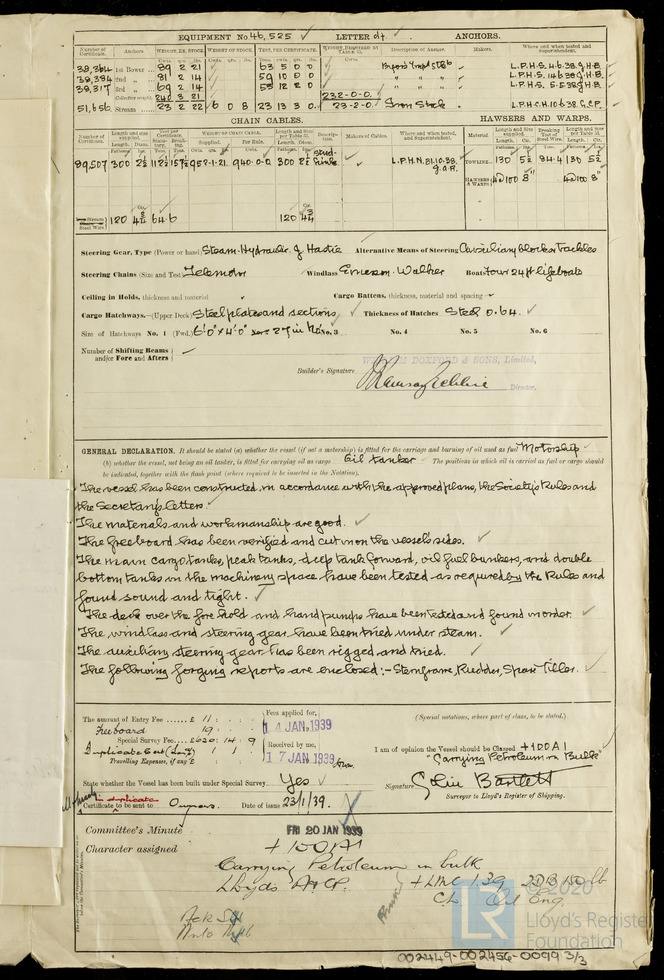 EQUIPMENT No. 46,525 LETTER d†. ANCHORS.
Number of Certificate. Anchors WEIGHT, EX. STOCK WEIGHT OF STOCK TEST, PER CERTIFICATE. WEIGHT REQUIRED BY TABLE 31. Description of Anchor. Makers. Where and when tested and Superintendent.
38,364 1st Bower 89 2 21 63 5 0 0 L.P.H-S. 4.6.38 J.H.B.
38,384 2nd " 81 2 14 59 10 0 0 " " " L.P.H-S. 14.6.38 J.H.B.
39,317 3rd " 69 2 14 53 12 2 0 " " " L.P.H-S. 5.5.38 J.H.B.
Collective weight 240 3 21 232-0-0.
51,656 Stream 23 2 22 6 0 8 23 13 3 0 23-2-0. Iron Stock L.P.H-C.H. 10.6.38. G.C.P.
CHAIN CABLES. HAWSERS AND WARPS.
Number of Certificate. Length and size supplied. Test per Certificate. WEIGHT OF CHAIN CABLE. Length and Size per Table 31. Description. Makers of Cables. Where and when tested, and Superintendent. Material. Length and Size supplied. Breaking Test of Steel Wire. Length and Size per Table 31.
Supplied. Per Rule.
89,507 300 952-1-21. 940-0-0 300 Stud Link L.P.H.N. 31.10.38. J.A.R. TOWLINE 130 5½ 84.4 130 5½
HAWSERS & WARPS 4@100 8" 4@100 8"
Stream Steel Wire 120 64.6 120
Steering Gear, Type (Power or hand) Steam-Hydraulic by Hastie Alternative Means of Steering Auxiliary blocks & tackles
Steering Chains (Size and Test) Telemotor Windlass Emerson Walker Boats Four 24ft lifeboats
Ceiling in Holds, thickness and material Cargo Battens, thickness, material and spacing
Cargo Hatchways.—(Upper Deck) Steel plates and sections Thickness of Hatches Steel 0.64.
Size of Hatchways No. 1 (Fwd.) 6'0" x 4'0" 27 in No. No. 3 No. 4 No. 5 No. 6
Number of Shifting Beams and/or Fore and Afters
WILLIAM DOXFORD & SONS, Limited,
Builder's Signature
Director.
GENERAL DECLARATION. It should be stated (a) whether the vessel (if not a motorship) is fitted for the carriage and burning of oil used as fuel Motorship
(b) whether the vessel, not being an oil tanker, is fitted for carrying oil as cargo Oil tanker The positions in which oil is carried as fuel or cargo should
be indicated, together with the flash point (where required to be inserted in the Notation).
The vessel has been constructed in accordance with the approved plans, the Society's Rules and
the Secretary's letters.
The materials and workmanship are good.
The freeboard has been verified and cut in on the vessel's sides.
The main cargo tanks, peak tanks, deep tank forward, oil fuel bunkers, and double
bottom tanks in the machinery space have been tested as required by the Rules and
found sound and tight.
The deck over the fore hold and hand pumps have been tested and found in order.
The windlass and steering gear have been tried under steam.
The auxiliary steering gear has been rigged and tried.
The following forging reports are enclosed:- Sternframe, Rudder, Spare Tiller.
The amount of Entry Fee £ 11 : :
Freeboard 19 : :
Special Survey Fee £620 : 14 : 9
Duplicate Cert 1 : 1 :
Travelling Expenses, if any £
Fees applied for,
14 JAN 1939
Received by me,
17 JAN 1939
(Special notations, where part of class, to be stated.)
I am of opinion the Vessel should be Classed +100A1
"Carrying Petroleum in Bulk"
State whether the Vessel has been built under Special Survey Yes
Signature Colin Bartlett
Surveyor to Lloyd's Register of Shipping.
in duplicate
Certificate to be sent to Owners. Date of issue 23/1/39.
Committee's Minute FRI 20 JAN 1939
Character assigned +100A1
Carrying Petroleum in bulk
Lloyds A&CP. +LMC 1.39 2DB 150 lb
CL Oil Eng.
© 2020
LR
Lloyd's Register
Foundation
002449-002456-0099 3/3